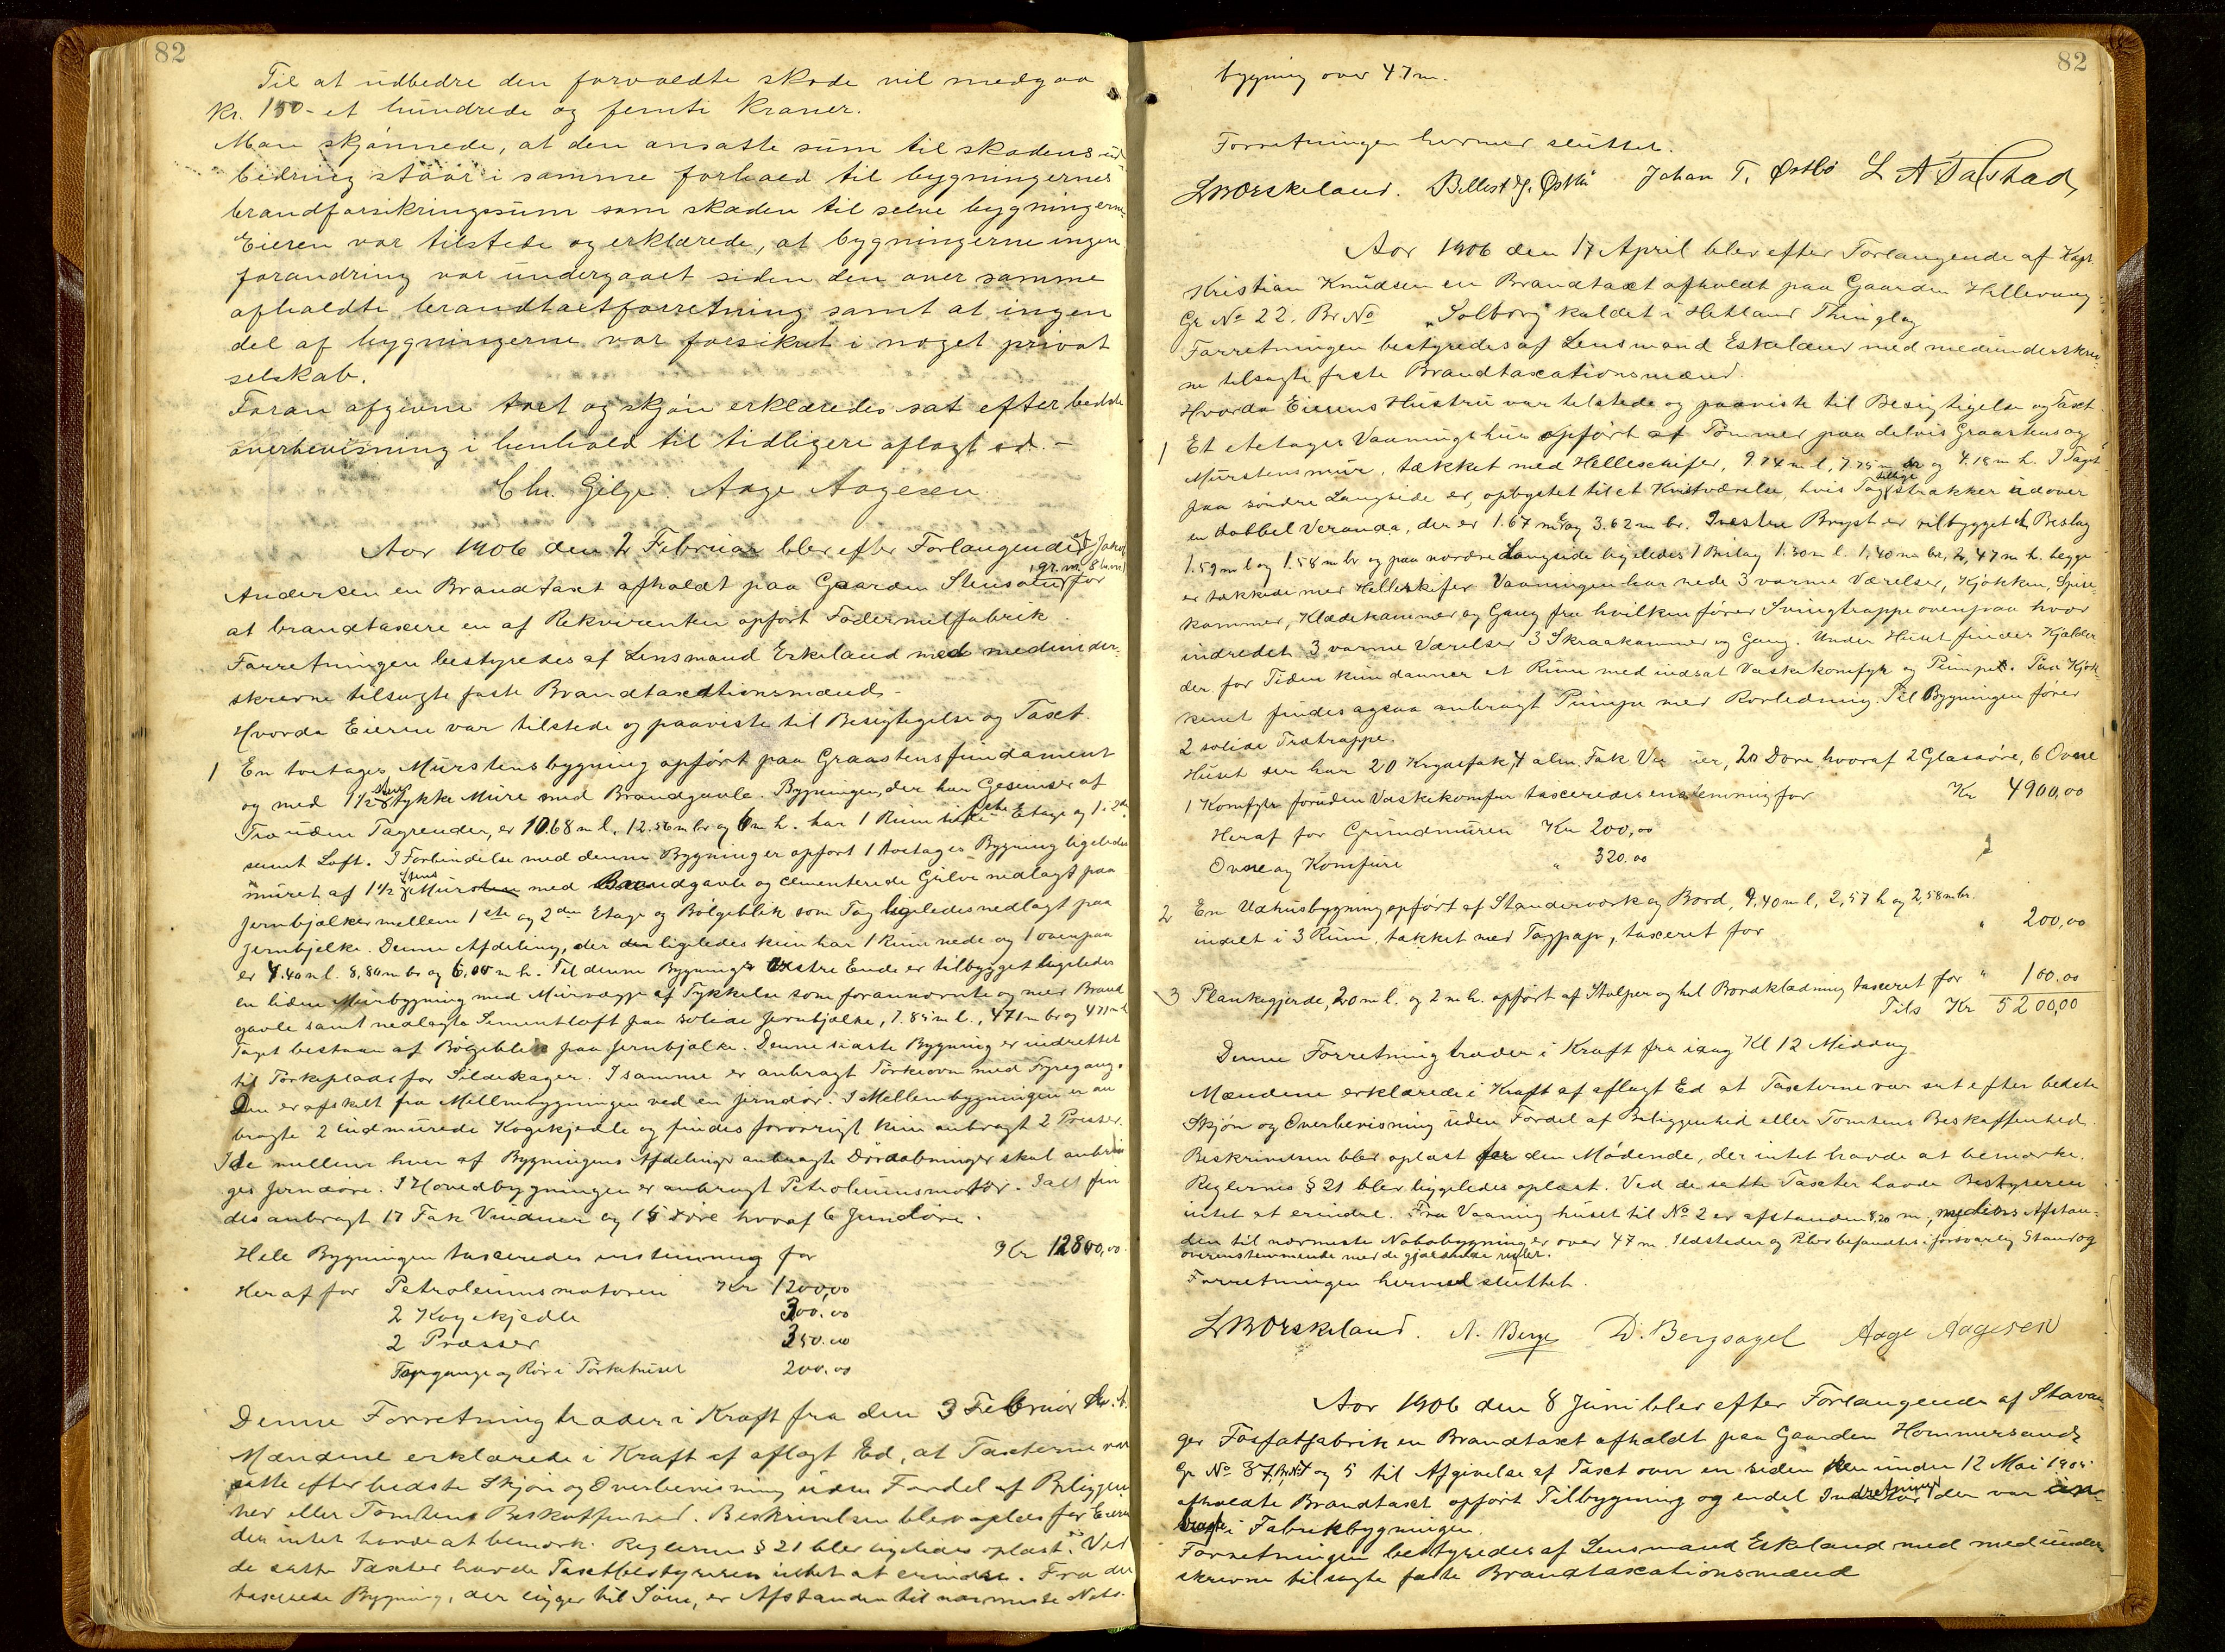 82
Til at udbedre den forvoldte skade vil medgaa
Kr. 150 - et hundrede og femti Kroner.
Man skjønnede, at den ansatte sum til skadens ud
bedring staar i samme forhold til bygningernes
brandforsikringssum som skaden til selve bygningerne
Eieren var tilstede og erklærede, at bygningerne ingen
forandring var undergaaet siden den over samme
afholdte brandtaxtforretning samt at ingen
del af bygningerne var forsikret i noget privat
selskab.
Foran afgivne taxt og skjøn erklæredes sat efter bedste
overbevisning i henhold til tidligere aflagt ed. -
Chr. Gilje. Aage Aagesen.
Aar 1906 den 2 Februar blev efter Forlangende af Jakob
Andersen en Brandtaxt afholdt paa Gaarden Stensund, gr. nr. 8 for
at brandtaxere en af Rekvirenten opført Fodermelfabrik.
Forretningen bestyredes af Lensmand Eskeland med medunder-
skrevne tilsagte faste Brandtaxtionsmænd -
Hvorda Eieren var tilstede og paaviste til Besigtigelse og Taxt.
1 En toetages Murstensbygning opført paa Graastensfundament
og med 1 1/2 Stens tykke Mure med Brandgavle. Bygningen, der har Gesimser af
Træ uden Tagrender, er 10.68 m l, 12.56 m br og 6 m h. har 1 Rum i 1ste Etage og 1 i 2den
samt Loft. I Forbindelse med denne Bygning er opført 1 toetages Bygning ligeledes
muret af 1 1/2 Stens Mur med Brandgavle og cementerede Gulve nedlagt paa
Jernbjælker mellem 1ste og 2den Etage og Bølgeblik som Tag ligeledes nedlagt paa
Jernbjelke. Denne Afdeling, der ligeledes kun har 1 Rum nede og 1 ovenpaa
er 4.40 m l. 8,80 m br og 6,00 m h. Til denne Bygnings Østre Ende er tilbygget ligeledes
en liden Murbygning med Murvægge af Tykkelse som forannævnte og med Brand
gavle samt nedlagte Sementloft paa solide Jernbjælke, 7.85 m l., 4.71 m br og 4.71 m h
Taget bestaar af Bølgeblik paa Jernbjælke. Denne sidste Bygning er indrettet
til Tørkeplads for Sildekager. I samme er anbragt Tørkeovn med Fyrgang.
Den er afskilt fra Mellembygningen ved en Jerndør. I Mellembygningen er an
bragte 2 indmurede Kogekjedle og findes forøvrigt kun anbragt 2 Presser.
I de mellem hver af Bygningens Afdelinger anbragte Døraabninger skal anbrin
ges Jerndøre. I Hovedbygningen er anbragt Petroleumsmotor. Ialt fin
des anbragt 17 Fak Vinduer og 15 Døre hvoraf 6 Jerndøre.
Hele Bygningen taxeredes enstemmig for Kr 12800,00.
Heraf for Petroleumsmotoren Kr 1200,00
2 Kogekjedle 300.00
2 Præsser 350.00
Fyrgange og Rør i Tørkehuset 200.00
Denne Forretning træder i Kraft fra den 3 Februar d. A.
Mændene erklærede i Kraft af aflagt Ed, at Taxterne var
satte efter bedste Skjøn og Overbevisning uden Fordel af Beliggen
hed eller Tomtens Beskaffenhed. Beskrivelsen blev oplæst for Eieren
der intet havde at bemærke. Reglernes § 21 blev ligeledes oplæst. Ved
de satte Taxter havde Taxtbestyreren intet at erindre. Fra den
taxerede Bygning, der ligger til Søen, er Afstanden til nærmeste Nabo-
82
bygning over 47 m.
Forretningen hermed sluttet.
LWEskeland. Johan T. Østbø L A Salstad
Aar 1906 den 17 April blev efter Forlangende af Kapt.
Kristian Knudsen en Brandtaxt afholdt paa Gaarden Hillevaag
Gr No 22. Br No "Solborg" kaldet i Hetland Thinglag
Forretningen bestyredes af Lensmand Eskeland med medunderskrev-
ne tilsagte faste Brandtaxationsmænd.
Hvorda Eierens Hustru var tilstede og paaviste til Besigtigelse og Taxt.
1 Et etetages Vaaningshus opført af Tømmer paa delvis Graastens og
Murstensmur, tækket med Helleskifer, 9.74 m l, 7.75 m br og 4.18 m h. I Taget
paa søndre Langside er opbygget til et Kvistværelse, hvis Tag tillige strækker udover
en dobbel Veranda, der er 1.67 m l og 3.62 m br. Vestre Bryst er tilbygget et Beslag
1.59 m l og 1.58 m br og paa nordre Langside ligeledes 1 Beslag 1.30 m l. 1,40 m br, 2,47 m h. begge
er tækkede med Helleskifer. Vaaningen har nede 3 varme Værelser, Kjøkken, Spise-
kammer, Klædekammer og Gang fra hvilken fører Svingtrappe ovenpaa hvor
indredet 3 varme Værelser 3 Skraakammer og Gang. Under Huset findes Kjælder
der for Tiden kun danner et Rum med indsat Vaskekomfyr og Pumpe. Paa Kjøk-
kenet findes ogsaa anbragt Pumpe med Rørledning. Til Bygningen fører
2 solide Trætrappe.
Huset der har 20 Krydsfak, 4 alm. Fak Vinduer, 20 Døre hvoraf 2 Glasdøre, 6 Ovne
1 Komfyr foruden Vaskekomfur taxeredes enstemmig for Kr 4900,00
Heraf for Grundmuren Kr 200,00
Ovne og Komfure " 320.00
2 En Udhusbygning opført af Standerværk og Bord, 9.40 m l, 2,57 h og 2,58 m br.
indelt i 3 Rum, tækket med Tagpap, taxeret for " 200,00
3 Plankegjerde, 20 m l. og 2 m h. opført af Stolper og hel Bordklædning taxeret for " 100.00
Tils Kr 5200,00
Denne Forretning træder i Kraft fra idag Kl 12 Middag
Mændene erklærede i Kraft af aflagt Ed at Taxterne var sat efter bedste
Skjøn og Overbevisning uden Fordel af Beliggenhed eller Tomtens Beskaffenhed.
Beskrivelsen blev oplæst for den Mødende, der intet havde at bemærke.
Reglernes § 21 blev ligeledes oplæst. Ved de satte Taxter havde Bestyreren
intet at erindre. Fra Vaaning huset til No 2 er afstanden 8,20 m, medens Afstan-
den til nærmeste Nabobygning er over 47 m. Ildsteder og Piber befandtes i forsvarlig Stand og
overensstemmende med de gjældende regler.
Forretningen hermed sluttet.
LWEskeland. A. Berge D. Bergsagel Aage Aagesen
Aar 1906 den 8 Juni blev efter Forlangende af Stavan
ger Fosfatfabrik en Brandtaxt afholdt paa Gaarden Hommersand
Gr No 37, Br. No 4 og 5 til Afgivelse af Taxt over en siden den under 12 Mai 1905
afholdte Brandtaxt opført Tilbygning og endel Indretninger der var an-
bragt i Fabrikbygningen.
Forretningen bestyredes af Lensmand Eskeland med medunder
skrevne tilsagte faste Brandtaxationsmænd